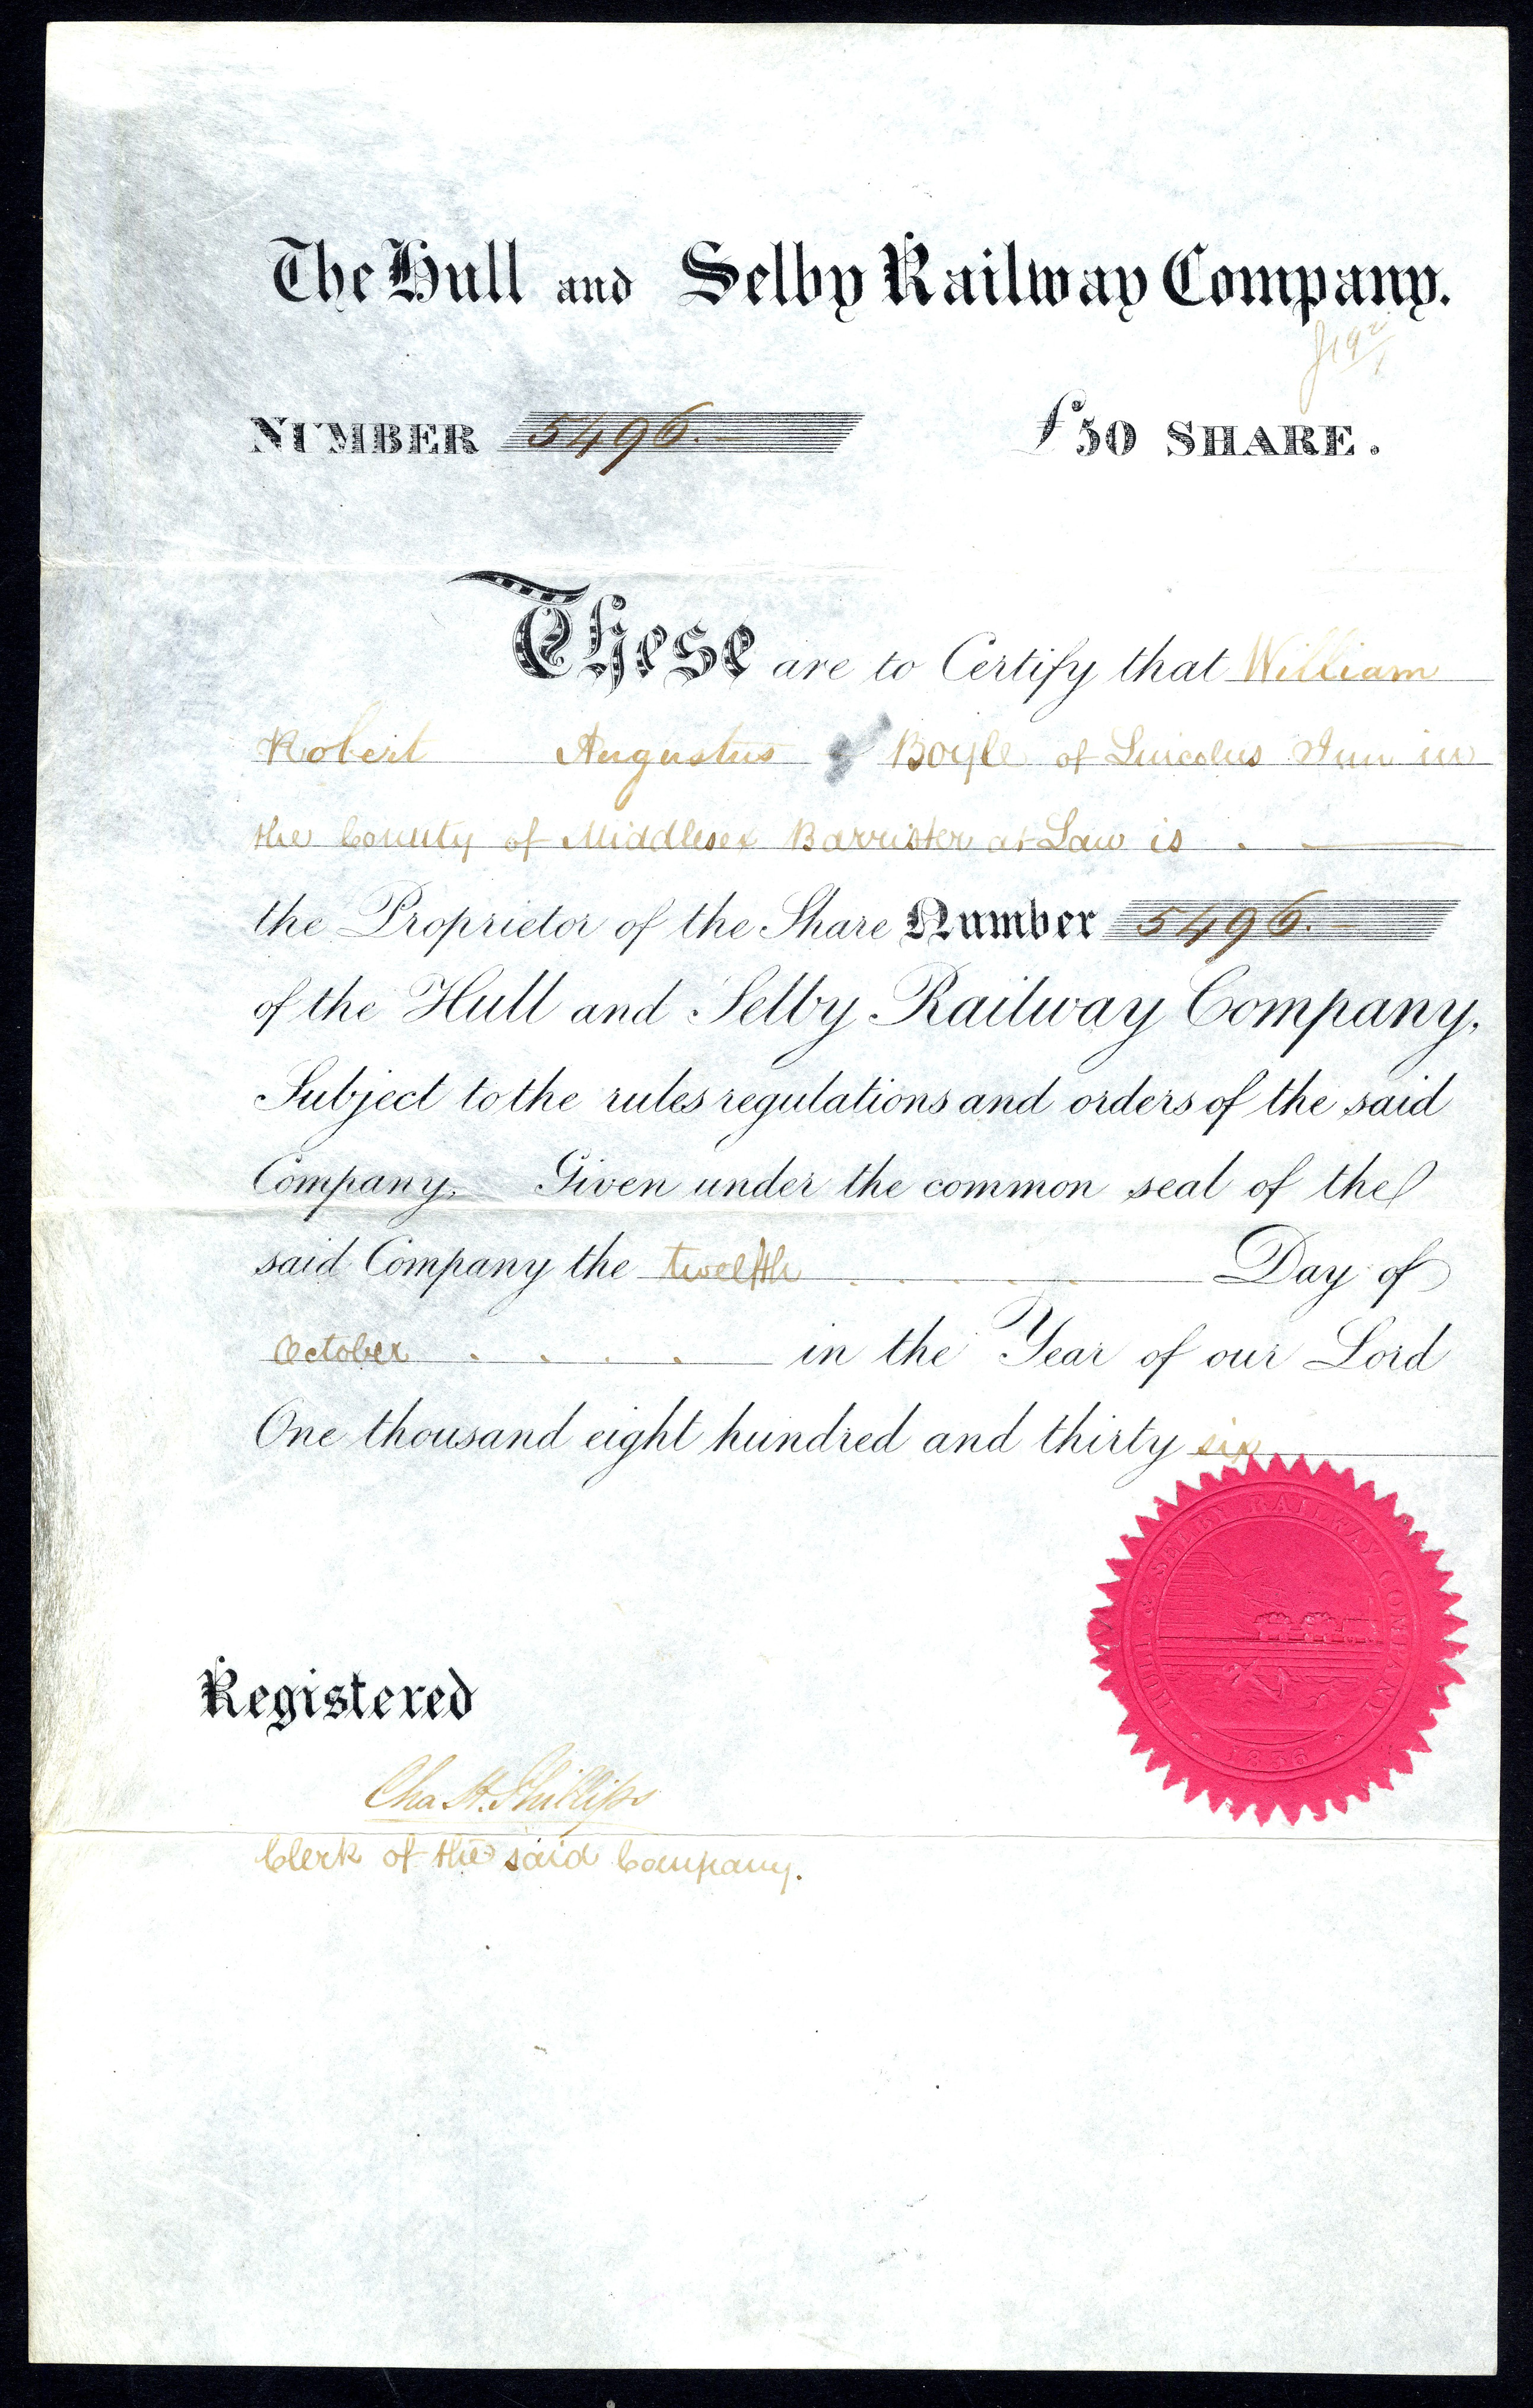 The Hull and Selby Railway Company.
NUMBER 5496.- £50 SHARE.
These are to Certify that William
Robert Augustus Boyle of Lincolns Inn in
the County of Middlesex Barrister at Law is
the Proprietor of the Share Number 5496.-
of the Hull and Selby Railway Company,
Subject to the rules regulations and orders of the said
Company. Given under the common seal of the
said Company the twelfth Day of
October in the Year of our Lord
One thousand eight hundred and thirty six
HULL & SELBY RAILWAY COMPANY
1836
Registered
Chas. H. Phillips
Clerk of the said Company.